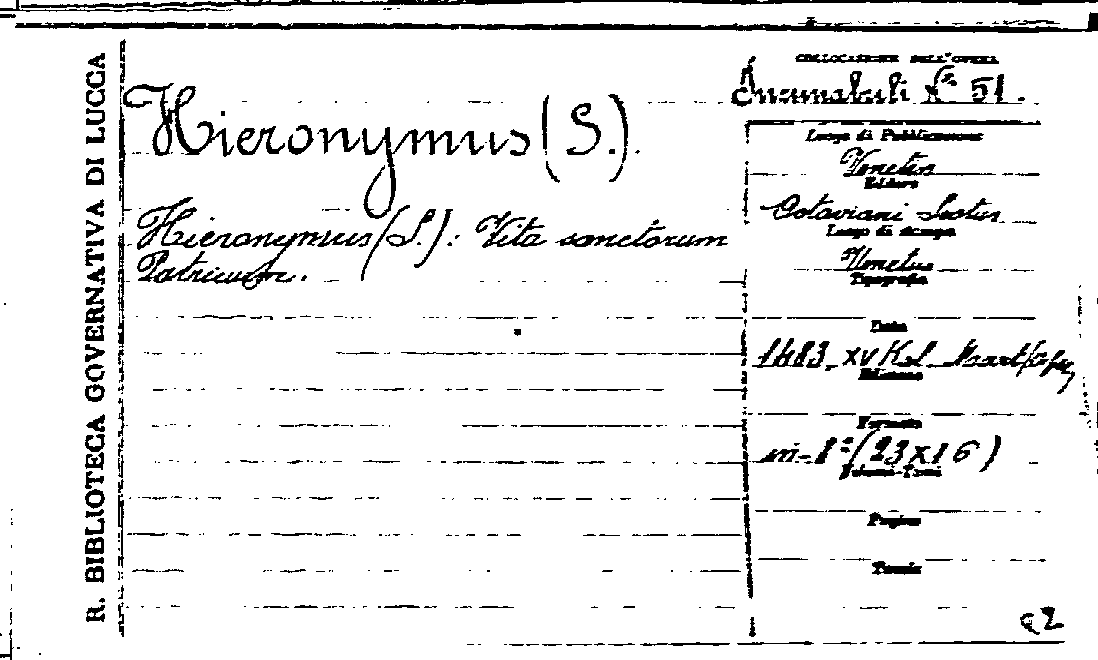 R. BIBLIOTECA GOVERNATIVA DI LUCCA
Hieronymus (S.)
Hieronymus (S.): Vita sanctorum
Patruum.
COLLOCAZIONE DELL'OPERA
Incunabuli N.º 51.
Luogo di Pubblicazione
Venetiis
Editore
Octaviani Scotus
Luogo di stampa
Venetiis
Tipografia
Data
1483, XV Kal.
Edizione
Formato
in-8º (23x16)
Volume-Tomi
Pagine
Tavole